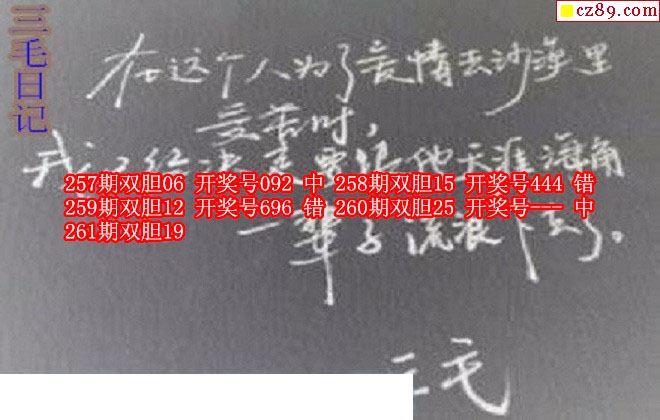 cz89.com
三毛日记
在这个人为了爱情去沙漠里
受苦时，
我心里已经决定要跟他天涯海角
257期双胆06 开奖号092 中 258期双胆15 开奖号444 错
259期双胆12 开奖号696 错 260期双胆25 开奖号--- 中
261期双胆19
一辈子流浪下去了。
三毛